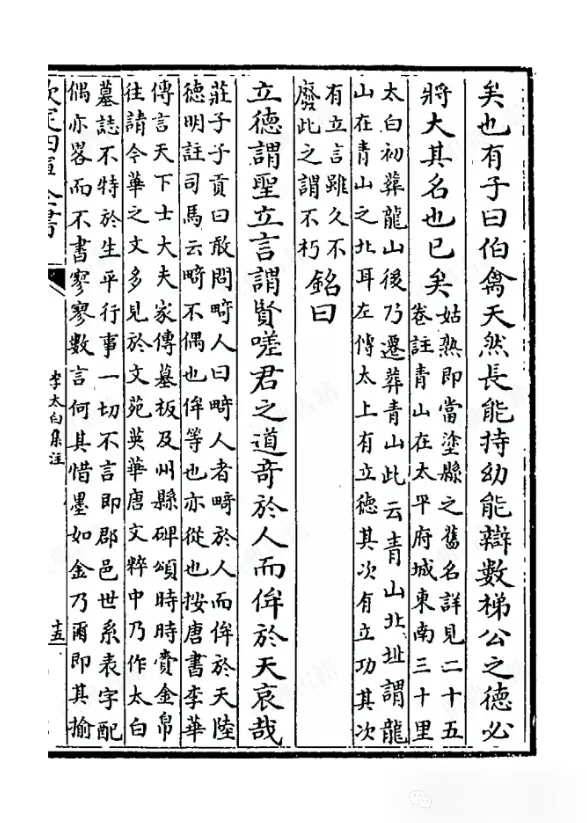 矣也有子曰伯禽天然長能持幼能辯數梯公之德必
將大其名也已矣
姑熟即當塗縣之舊名詳見二十五
卷註青山在太平府城東南三十里
太白初葬龍山後乃遷葬青山此云青山北址謂龍
山在青山之北耳左傳太上有立德其次有立功其次
有立言雖久不
廢此之謂不朽
銘曰
立德謂聖立言謂賢嗟君之道奇於人而侔於天哀哉
莊子子貢曰敢問畸人曰畸人者畸於人而侔於天陸
德明註司馬云畸不偶也侔等也亦從也按唐書李華
傳言天下士大夫家傳墓板及州縣碑頌時時賚金帛
往請今華之文多見於文苑英華唐文粹中乃作太白
墓誌不特於生平行事一切不言即郡邑世系表字配
偶亦畧而不書寥寥數言何其惜墨如金乃爾即其揄
欽定四庫全書
李太白集注
十五